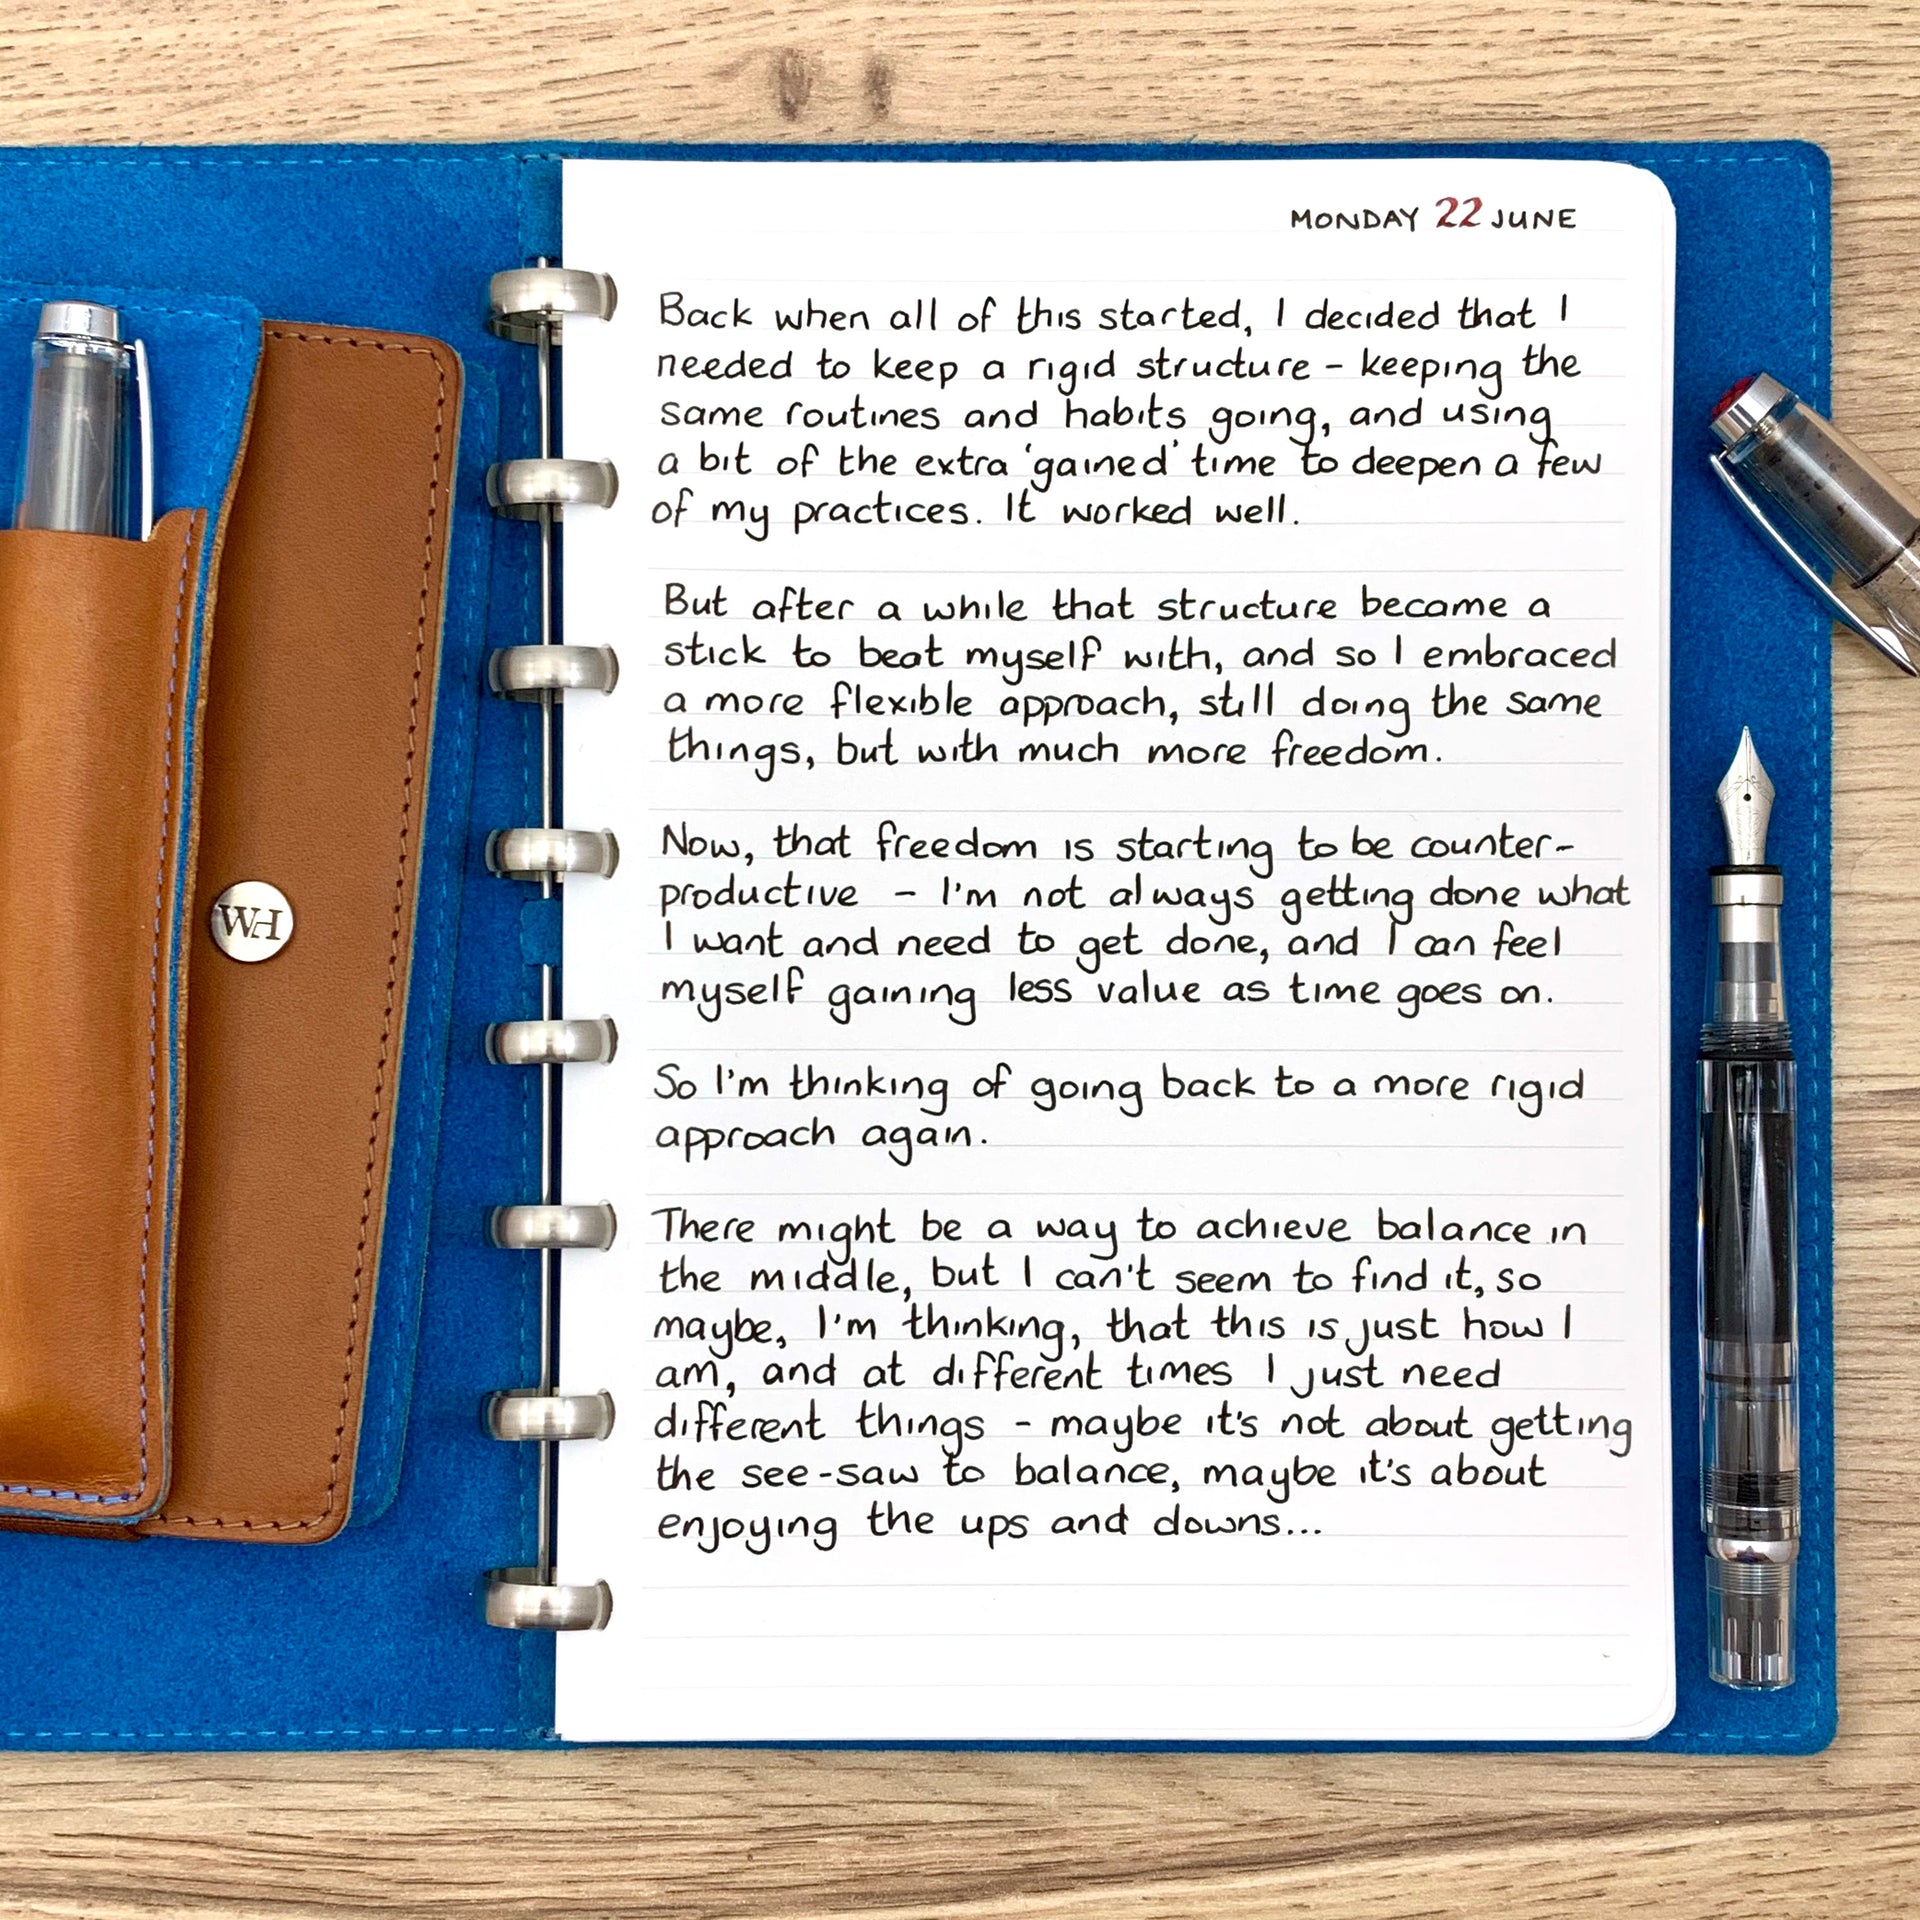 MONDAY 22 JUNE
Back when all of this started, I decided that I
needed to keep a rigid structure - keeping the
same routines and habits going, and using
a bit of the extra 'gained' time to deepen a few
of my practices. It worked well.
But after a while that structure became a
stick to beat myself with, and so I embraced
a more flexible approach, still doing the same
things, but with much more freedom.
Now, that freedom is starting to be counter-
productive - I'm not always getting done what
I want and need to get done, and I can feel
myself gaining less value as time goes on.
So I'm thinking of going back to a more rigid
approach again.
There might be a way to achieve balance in
the middle, but I can't seem to find it, so
maybe, I'm thinking, that this is just how I
am, and at different times I just need
different things - maybe it's not about getting
the see-saw to balance, maybe it's about
enjoying the ups and downs...
WH